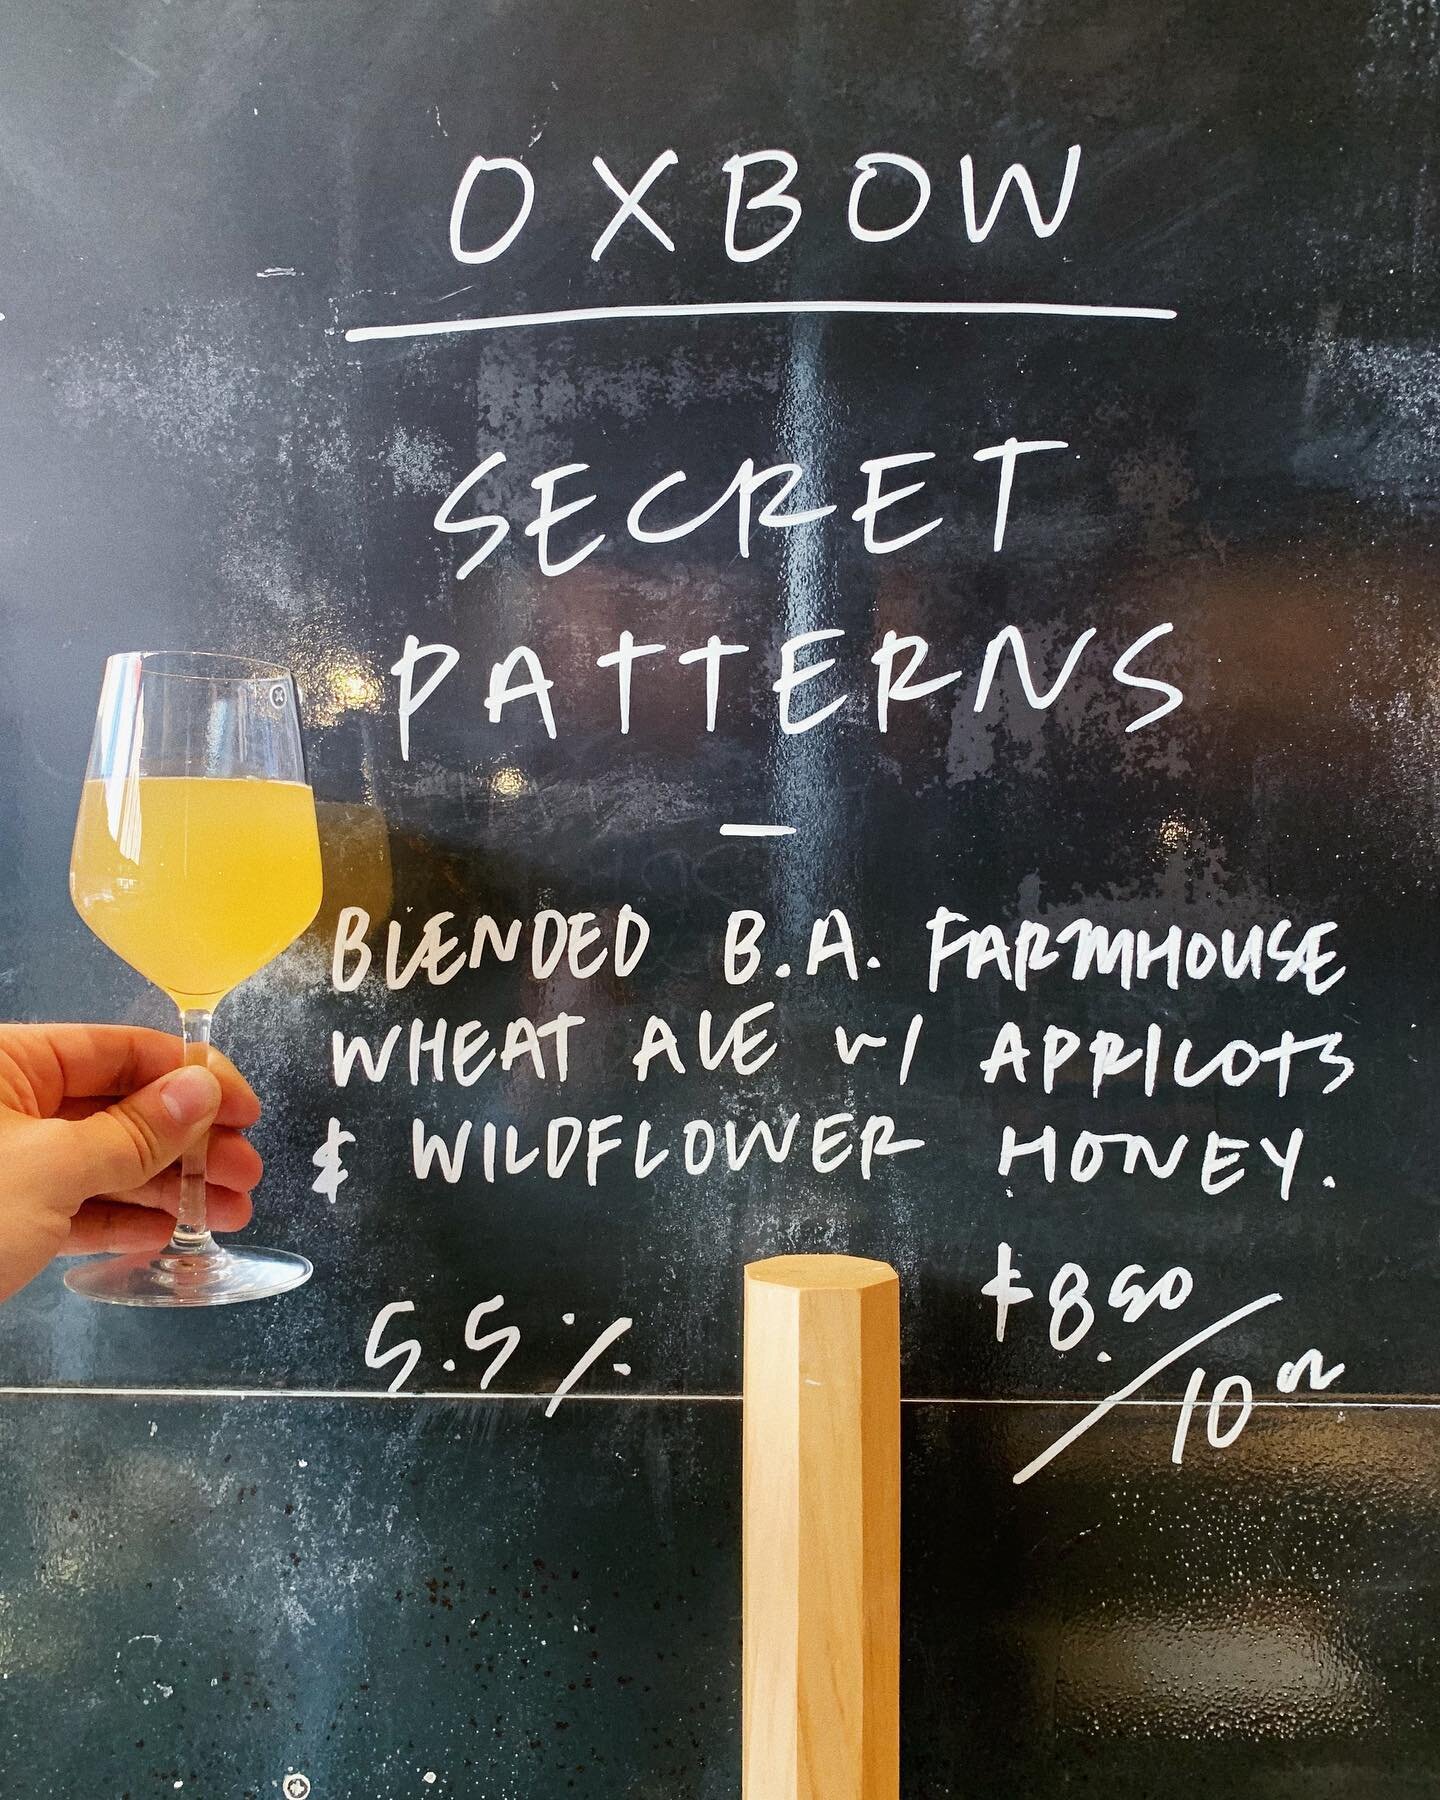 OXBOW
SECRET
PATTERNS
—
BLENDED B.A. FARMHOUSE
WHEAT ALE w/ APRICOTS
& WILDFLOWER HONEY.
5.5% $8.50/10oz